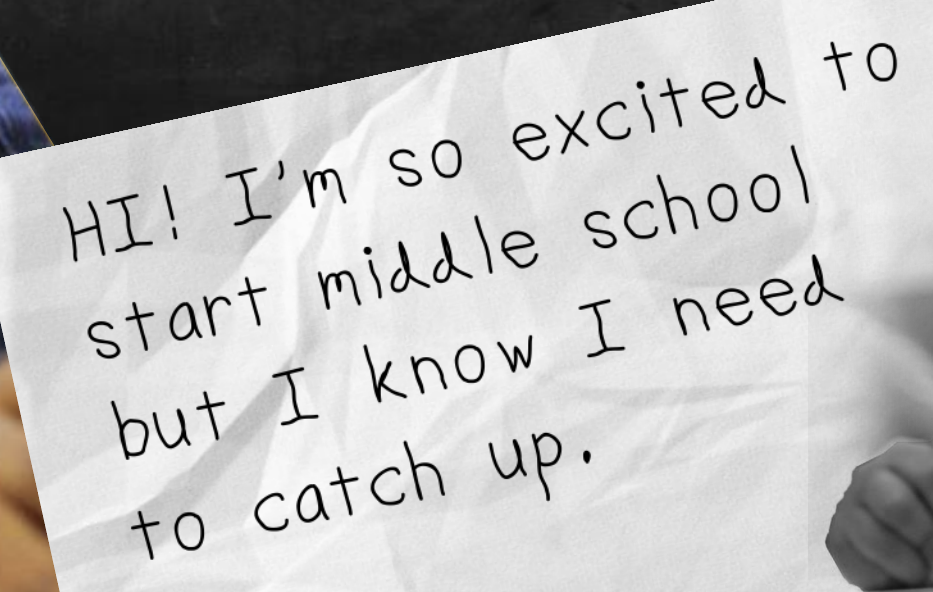 HI! I'm so excited to
start middle school
but I know I need
to catch up.